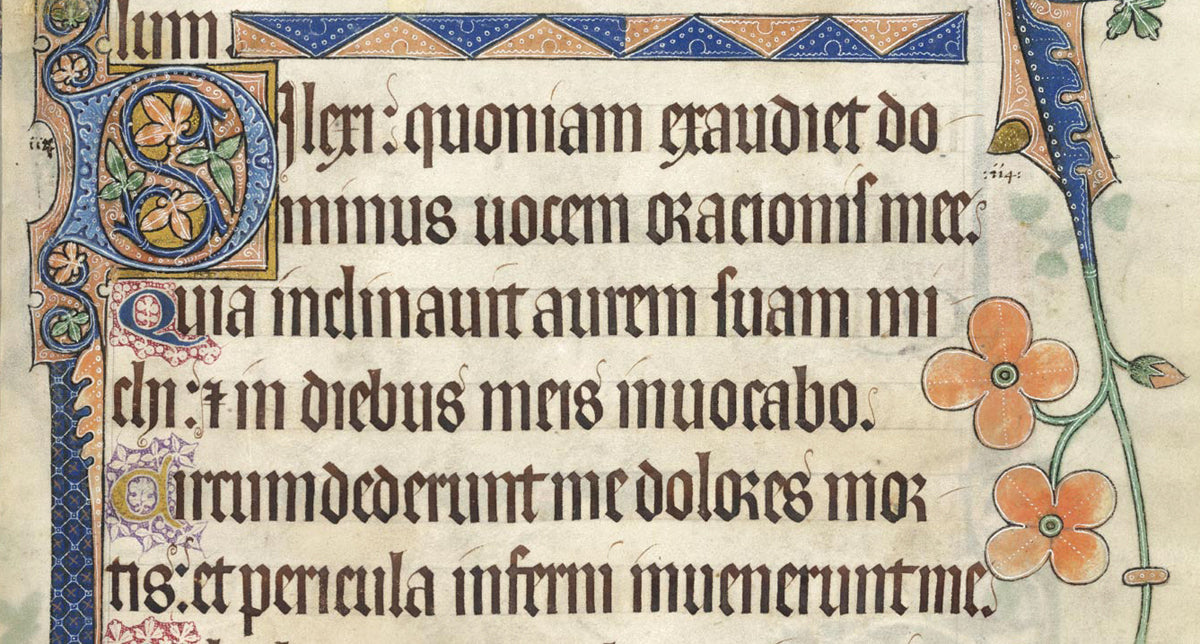 lum.
Dilexi: quoniam exaudiet do
minus uocem oracionis mee.
Quia inclinauit aurem suam mi
chi: ⁊ in diebus meis inuocabo.
Circumdederunt me dolores mor
tis: et pericula inferni inuenerunt me.
:114: